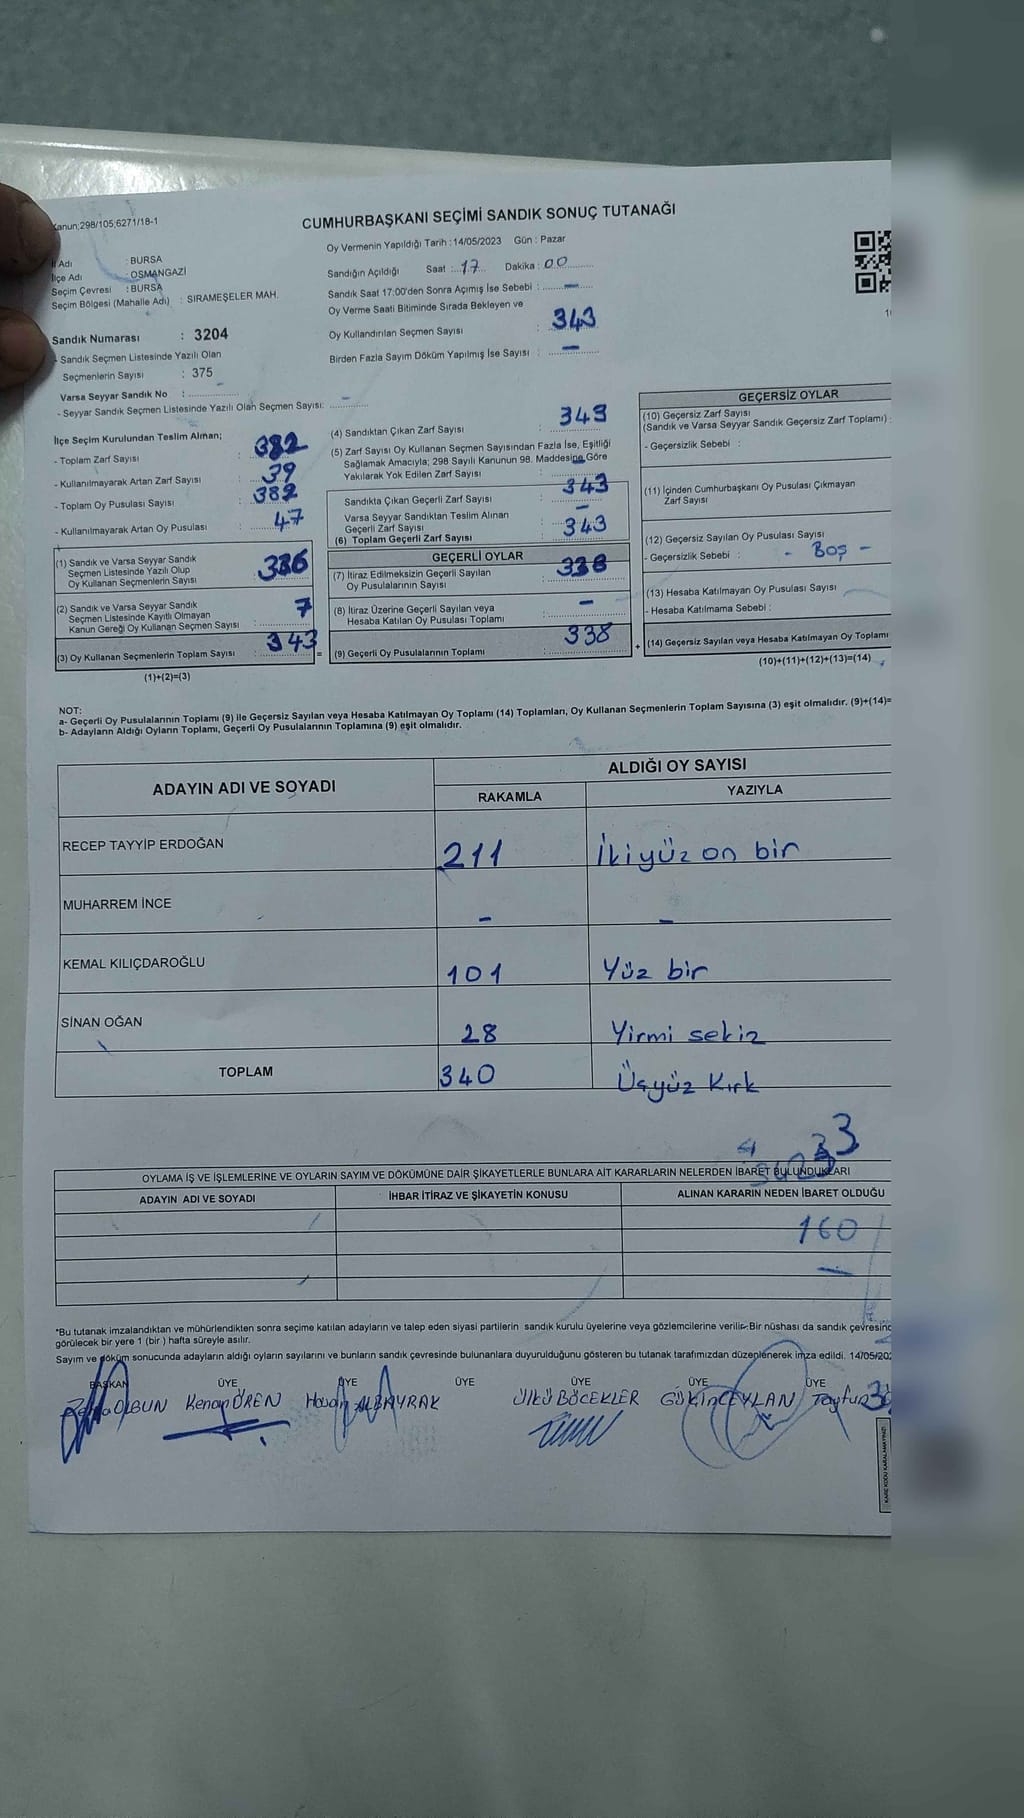 Kanun;298/105;6271/18-1
CUMHURBAŞKANI SEÇİMİ SANDIK SONUÇ TUTANAĞI
Oy Vermenin Yapıldığı Tarih : 14/05/2023 Gün : Pazar
İl Adı : BURSA
İlçe Adı : OSMANGAZİ
Seçim Çevresi : BURSA
Seçim Bölgesi (Mahalle Adı) : SIRAMEŞELER MAH.
Sandığın Açıldığı Saat : 17 Dakika : 00
Sandık Saat 17:00'den Sonra Açımış İse Sebebi : -
Oy Verme Saati Bitiminde Sırada Bekleyen ve
Oy Kullandırılan Seçmen Sayısı : 343
Birden Fazla Sayım Döküm Yapılmış İse Sayısı : -
Sandık Numarası : 3204
- Sandık Seçmen Listesinde Yazılı Olan
Seçmenlerin Sayısı : 375
Varsa Seyyar Sandık No : -
- Seyyar Sandık Seçmen Listesinde Yazılı Olan Seçmen Sayısı:
İlçe Seçim Kurulundan Teslim Alınan;
- Toplam Zarf Sayısı : 382
- Kullanılmayarak Artan Zarf Sayısı : 39
- Toplam Oy Pusulası Sayısı : 382
- Kullanılmayarak Artan Oy Pusulası : 47
(1) Sandık ve Varsa Seyyar Sandık
Seçmen Listesinde Yazılı Olup
Oy Kullanan Seçmenlerin Sayısı : 336
(2) Sandık ve Varsa Seyyar Sandık
Seçmen Listesinde Kayıtlı Olmayan
Kanun Gereği Oy Kullanan Seçmen Sayısı : 7
(3) Oy Kullanan Seçmenlerin Toplam Sayısı : 343
(1)+(2)=(3)
(4) Sandıktan Çıkan Zarf Sayısı : 343
(5) Zarf Sayısı Oy Kullanan Seçmen Sayısından Fazla İse, Eşitliği
Sağlamak Amacıyla; 298 Sayılı Kanunun 98. Maddesine Göre
Yakılarak Yok Edilen Zarf Sayısı : -
Sandıkta Çıkan Geçerli Zarf Sayısı : 343
Varsa Seyyar Sandıktan Teslim Alınan
Geçerli Zarf Sayısı : -
(6) Toplam Geçerli Zarf Sayısı : 343
GEÇERLİ OYLAR
(7) İtiraz Edilmeksizin Geçerli Sayılan
Oy Pusulalarının Sayısı : 338
(8) İtiraz Üzerine Geçerli Sayılan veya
Hesaba Katılan Oy Pusulası Toplamı : -
(9) Geçerli Oy Pusulalarının Toplamı : 338
GEÇERSİZ OYLAR
(10) Geçersiz Zarf Sayısı
(Sandık ve Varsa Seyyar Sandık Geçersiz Zarf Toplamı) :
- Geçersizlik Sebebi :
(11) İçinden Cumhurbaşkanı Oy Pusulası Çıkmayan
Zarf Sayısı
(12) Geçersiz Sayılan Oy Pusulası Sayısı
- Geçersizlik Sebebi : - Boş -
(13) Hesaba Katılmayan Oy Pusulası Sayısı
- Hesaba Katılmama Sebebi :
(14) Geçersiz Sayılan veya Hesaba Katılmayan Oy Toplamı
(10)+(11)+(12)+(13)=(14)
NOT:
a- Geçerli Oy Pusulalarının Toplamı (9) ile Geçersiz Sayılan veya Hesaba Katılmayan Oy Toplamı (14) Toplamları, Oy Kullanan Seçmenlerin Toplam Sayısına (3) eşit olmalıdır. (9)+(14)=
b- Adayların Aldığı Oyların Toplamı, Geçerli Oy Pusulalarının Toplamına (9) eşit olmalıdır.
ADAYIN ADI VE SOYADI ALDIĞI OY SAYISI
RAKAMLA YAZIYLA
RECEP TAYYİP ERDOĞAN 211 İkiyüz on bir
MUHARREM İNCE - -
KEMAL KILIÇDAROĞLU 101 Yüz bir
SİNAN OĞAN 28 Yirmi sekiz
TOPLAM 340 Üçyüz Kırk
OYLAMA İŞ VE İŞLEMLERİNE VE OYLARIN SAYIM VE DÖKÜMÜNE DAİR ŞİKAYETLERLE BUNLARA AİT KARARLARIN NELERDEN İBARET BULUNDUKLARI
ADAYIN ADI VE SOYADI İHBAR İTİRAZ VE ŞİKAYETİN KONUSU ALINAN KARARIN NEDEN İBARET OLDUĞU
160
*Bu tutanak imzalandıktan ve mühürlendikten sonra seçime katılan adayların ve talep eden siyasi partilerin sandık kurulu üyelerine veya gözlemcilerine verilir. Bir nüshası da sandık çevresinde
görülecek bir yere 1 (bir) hafta süreyle asılır.
Sayım ve döküm sonucunda adayların aldığı oyların sayılarını ve bunların sandık çevresinde bulunanlara duyurulduğunu gösteren bu tutanak tarafımızdan düzenlenerek imza edildi. 14/05/202
BAŞKAN ÜYE ÜYE ÜYE ÜYE ÜYE ÜYE
OLGUN Kenan ÖREN Hasan ALBAYRAK ÜLKÜ BÖCEKLER CEYLAN Tayfun
KARE KODU KARALAMAYINIZ!